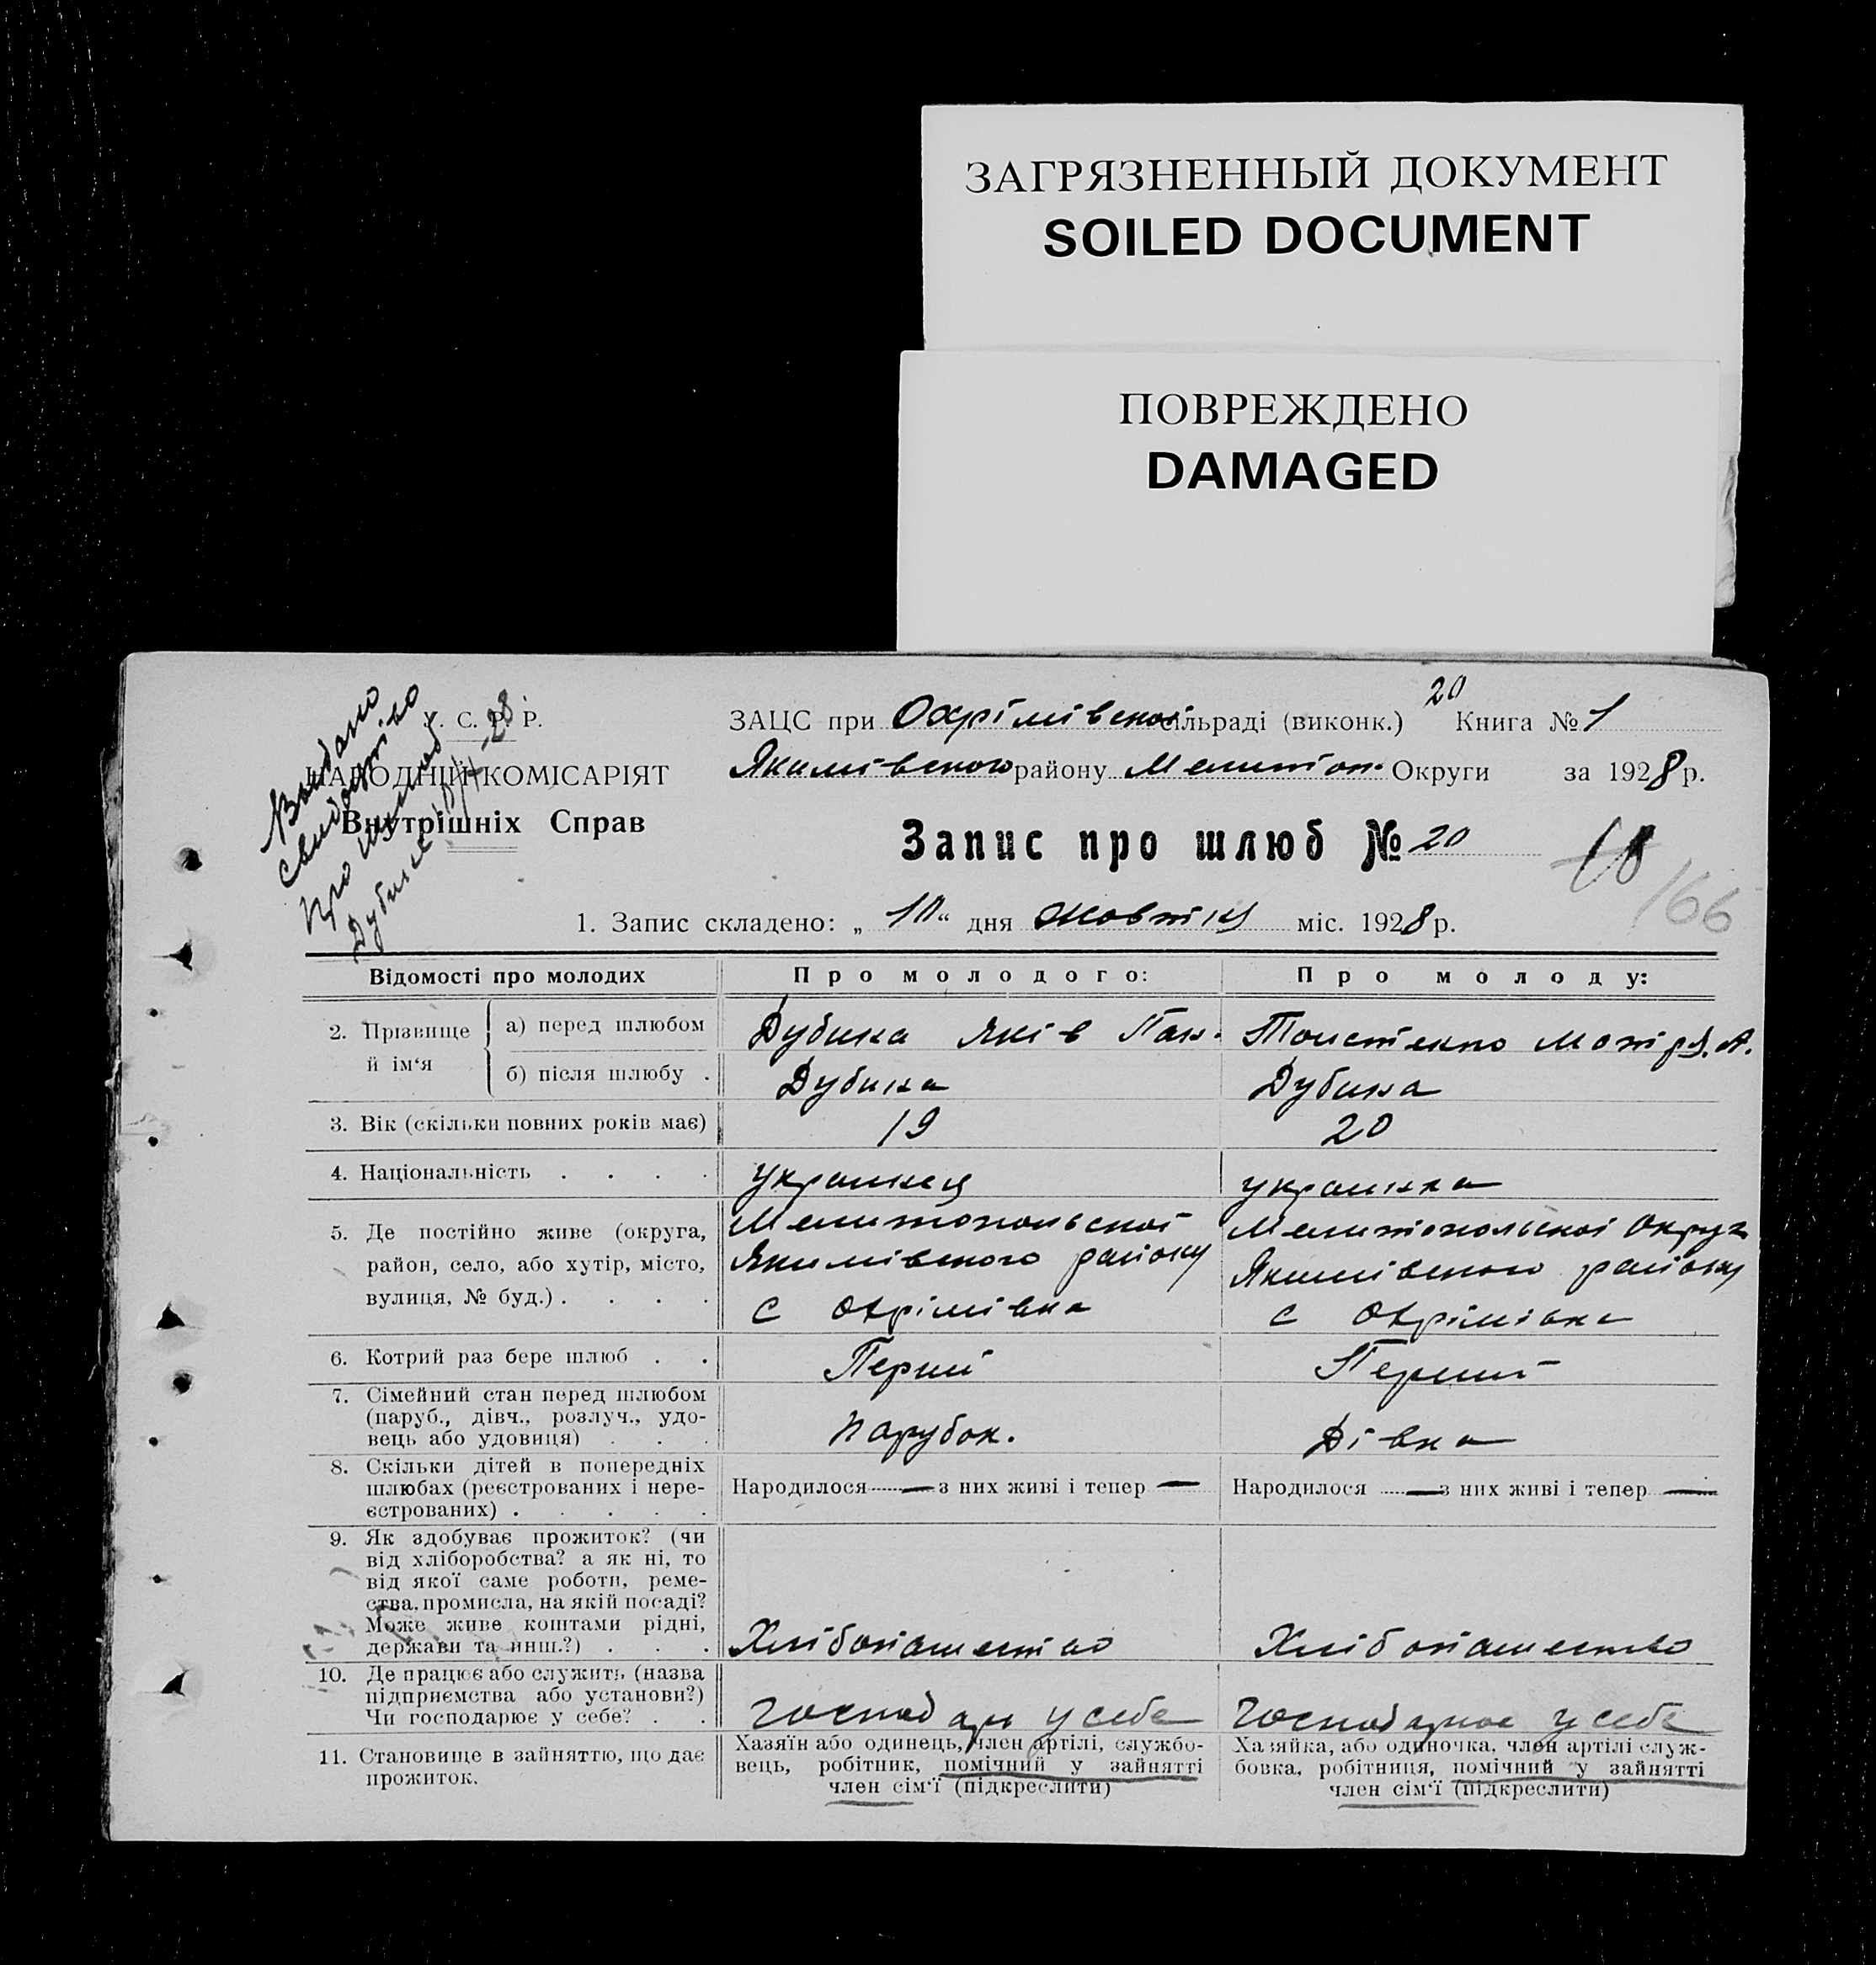 ЗАГРЯЗНЕННЫЙ ДОКУМЕНТ
SOILED DOCUMENT
ПОВРЕЖДЕНО
DAMAGED
Видано
свидоцтво
про шлюб
Дубина
У. С. Р. Р.
НАРОДНІЙ КОМІСАРІЯТ
Внутрішніх Справ
20
ЗАЦС при Охрімівской сільраді (виконк.) Книга № 1
Якимівского району Мелитоп. Округи за 1928 р.
Запис про шлюб № 20
18
166
1. Запис складено: „10“ дня жовтня міс. 1928 р.
Відомості про молодих
Про молодого:
Про молоду:
2. Прізвище й ім‘я
а) перед шлюбом
Дубина Яків Пан.
Мотря. А.
б) після шлюбу .
Дубина
Дубина
3. Вік (скільки повних років має)
19
20
4. Національність . . . .
украинец
украинка
5. Де постійно живе (округа,
район, село, або хутір, місто,
вулиця, № буд.) . . . .
Мелитопольскої
Якимівского району
с Охрімівка
Мелитопольскої Округ
Якимівского району
с Охрімівка
6. Котрий раз бере шлюб . .
Перший
Перший
7. Сімейний стан перед шлюбом
(паруб., дівч., розлуч., удо-
вець або удовиця) . . .
Парубок.
Дівка
8. Скільки дітей в попередніх
шлюбах (реєстрованих і нере-
єстрованих) . . . . .
Народилося — з них живі і тепер —
Народилося — з них живі і тепер —
9. Як здобуває прожиток? (чи
від хліборобства? а як ні, то
від якої саме роботи, реме-
ства, промисла, на якій посаді?
Може живе коштами рідні,
держави та инш.?) . . .
Хлібопашество
Хлібопашество
10. Де працює або служить (назва
підприємства або установи?)
Чи господарює у себе? . .
господарює у себе
Господарює у себе
11. Становище в зайняттю, що дає
прожиток.
Хазяїн або одинець, член артілі, службо-
вець, робітник, помічний у зайнятті
член сім‘ї (підкреслити)
Хазяйка, або одиночка, член артілі служ-
бовка, робітниця, помічний у зайнятті
член сім‘ї (підкреслити)